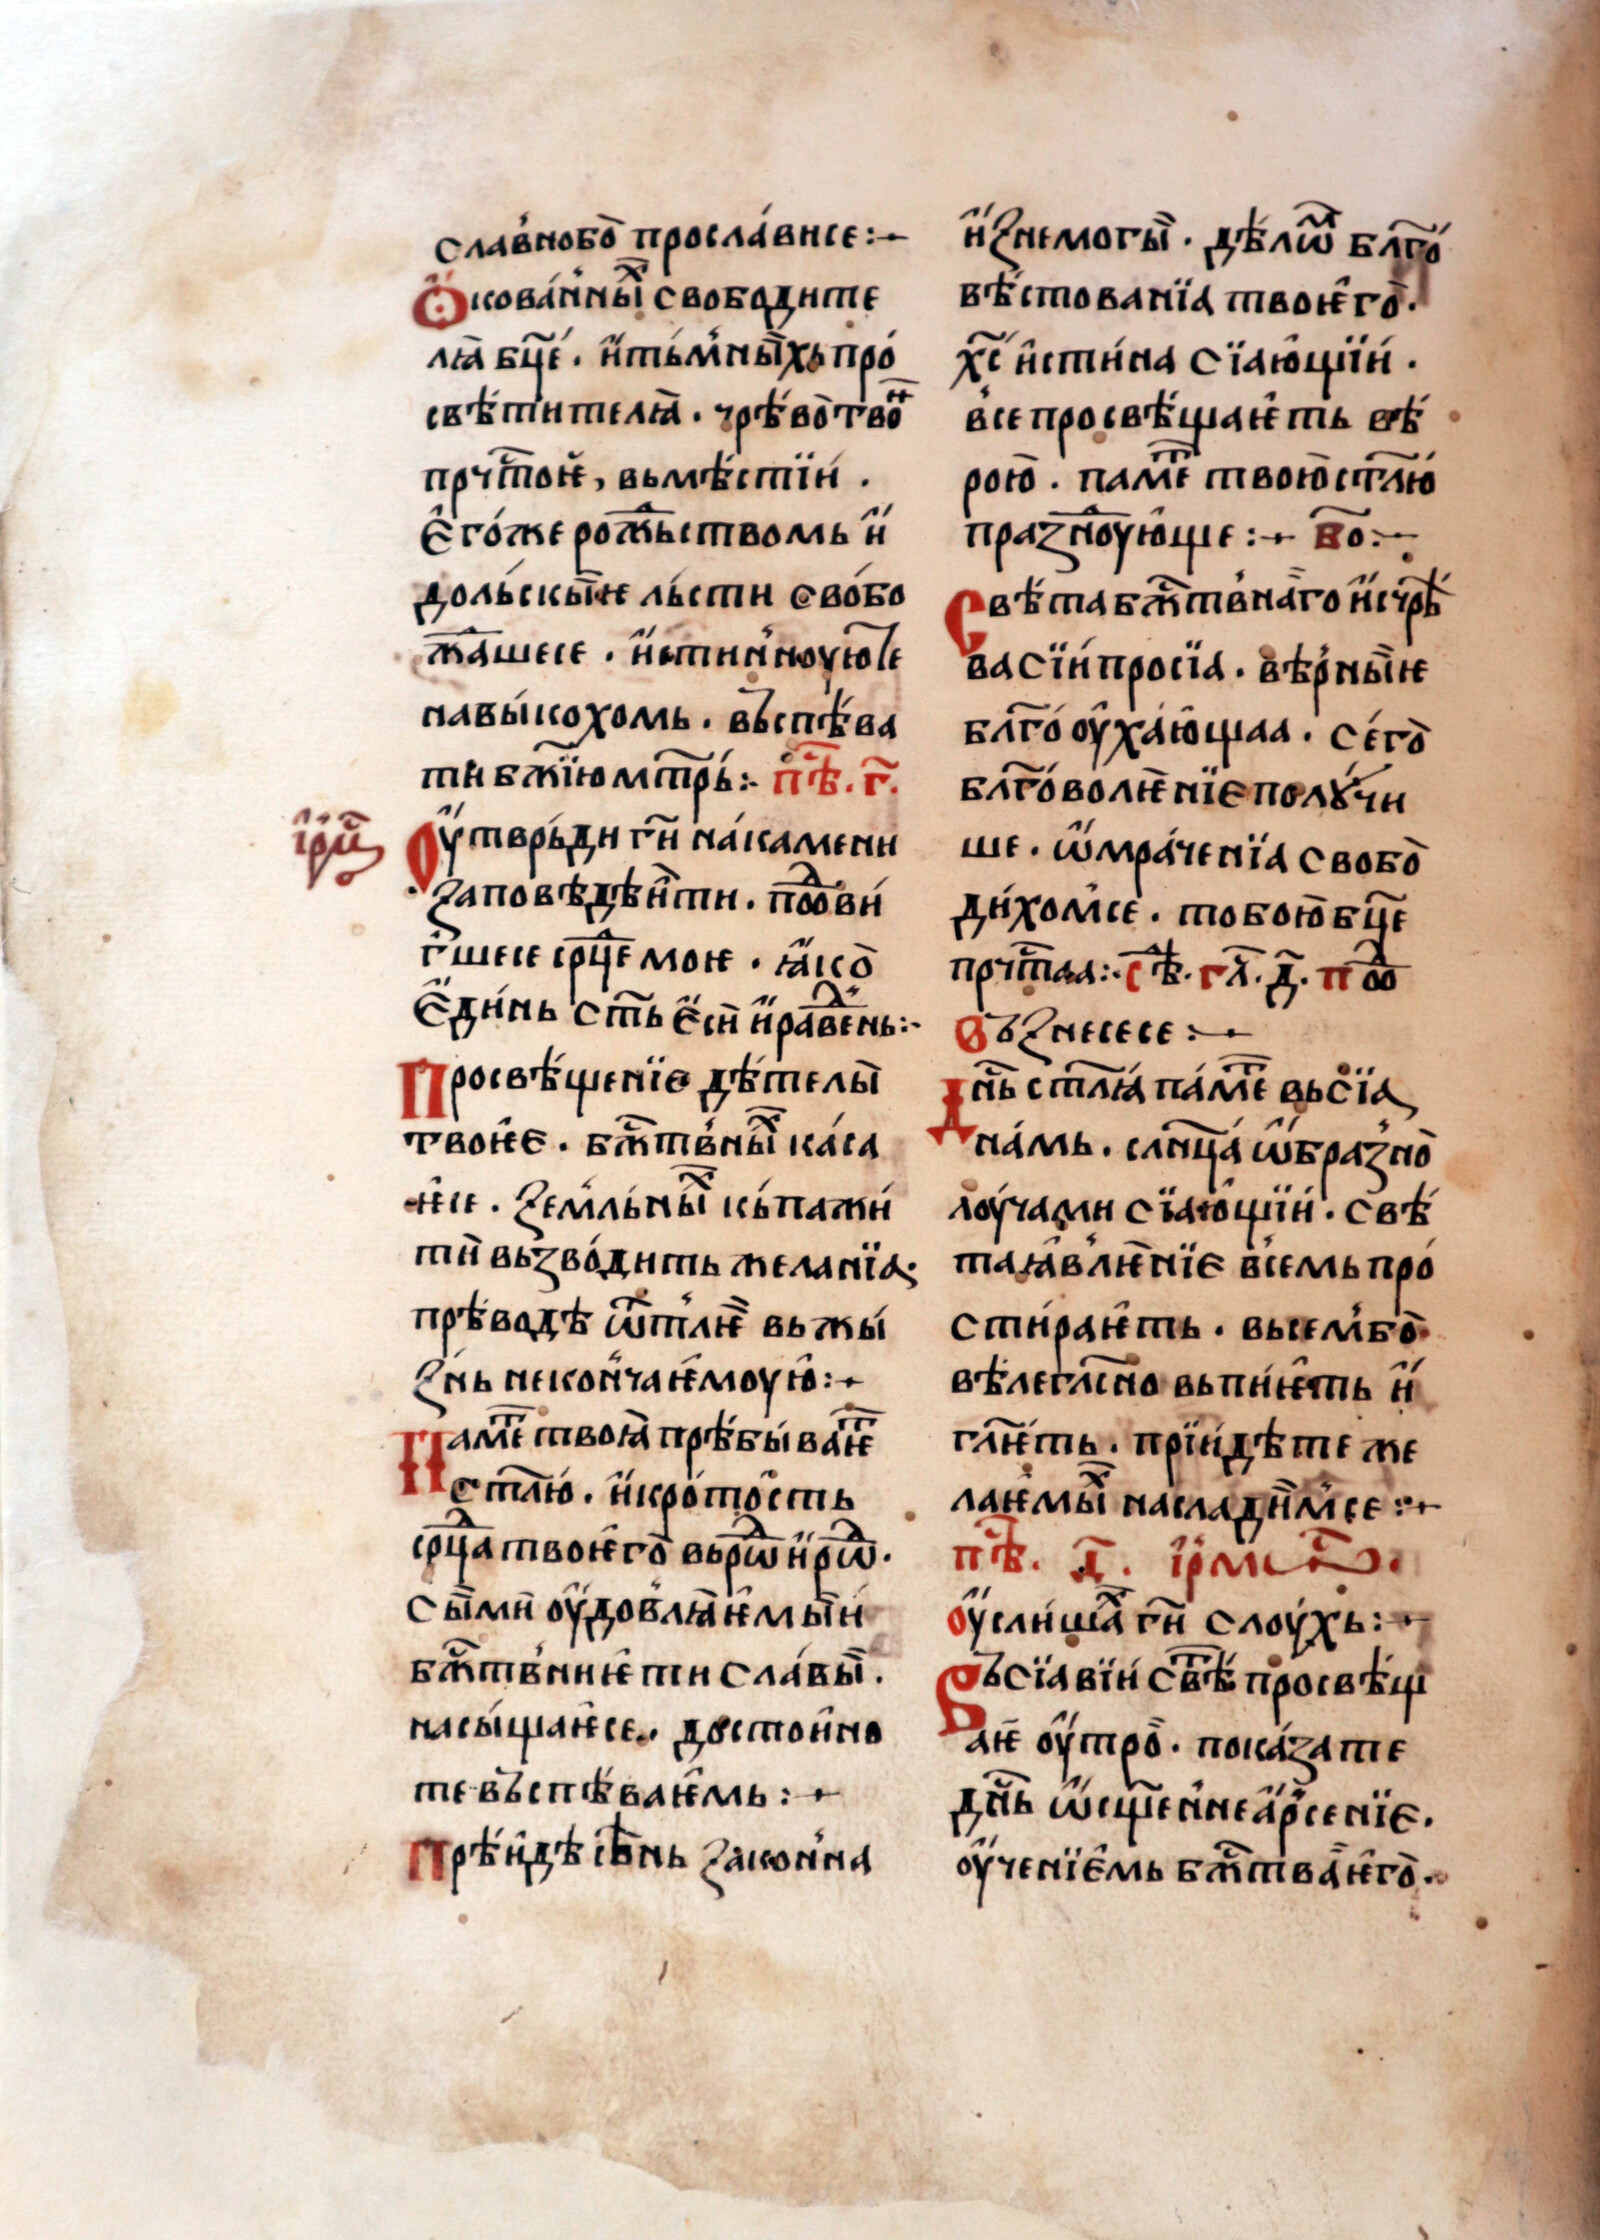 славнобо̀ прослависе:~
Ѡкова́нны̏ свободите
лꙗ бц҃е . и҆тъмны́хь про
свѣтителꙗ̀ . чрѣво̀ твоѥ
прчⷭ҇тоѥ, вьмѣстїи .
Є҆го́же рожⷣьствомь и҆
до́льскыѥ льсти свобо
жⷣашесе . и҆стин́ноую те
навыкохомь . въспѣва
ти бж҃їю мт҃рь:~ пѣⷭ҇. г҃.
і҆рмⷭ҇
Оу҆тврьди гⷭ҇и на́камени
заповѣдѣи ти . подⷣви
гшесе срⷣце моѥ . ꙗ҆ко̀
Є҆ди́нь ст҃ь є҆сѝ и҆ правⷣень:~
Просвѣщенїе дѣтелы̀
твоѥе . бжⷭ҇твны̏ каса
ѥсе . земльны̏ кь пажи
ти възводить желанїа.
прѣводѣ ѿтлѥ̏ вь жы́
знь некончаѥмоую:~
Паме̏ твоꙗ̀ прѣбываѥ̏
ст҃лю . и҆кротость
срⷣца твоѥго̀ вьрѡⷣ и҆ рѡⷣ.
сыми оу҆довлꙗѥмыи
бжⷭ҇твнниѥ ти славы̀ .
насы́щаѥсе . достоино
те въспѣваѥмь:~
Прѣи́дѣ сѣнь законна
и҆знемогы̀ . дѣлѡⷨ блг҃о
вѣстованїа твоѥго̀.
хⷭ҇ѣ и҆стина сїающїи .
все просвѣщаѥть вѣ
рою̀ . паме̏ твою̀ ст҃лю
празⷣноующе:~ Бо҃:~
Свѣта бжⷭ҇твна́го и҆счрѣ
ва сїи просїа . вѣрныѥ
блг҃о оу҆ха́ющаа . Се́го̀
блг҃оволѥнїе получи
ше . ѡ҆мраченїа свобо
ди́хомсе . тобою̀ бц҃е
прчⷭ҇таа:~ сѣⷣ. гл҃. д҃. поⷣⷪ
Възнесесе:~
Дн҃ь ст҃лꙗ паме̏ вьсїа
на́мь . слн҃ца ѡ҆бразно̀
лоучами сїающїи . свѣ
та ꙗ҆влѥнїе всемь про
стираѥть . вьсембо̀
вѣлегласно вьпиѥть и҆
глѥ҃ть . прїидѣте же
лаѥмы̏ насладимсе:~
пѣⷭ҇. д҃. і҆рмⷭ҇.
Оу҆слишаⷯ гⷭ҇и слоухь:~
Въсїавїи свѣ̏ просвѣщ
аѥ оу҆тро̀ . пока́зате
дн҃ь ѡ҆сщ҃енне а҆рсенїе.
оу҆ченїемь бжⷭ҇тваѥго̀.